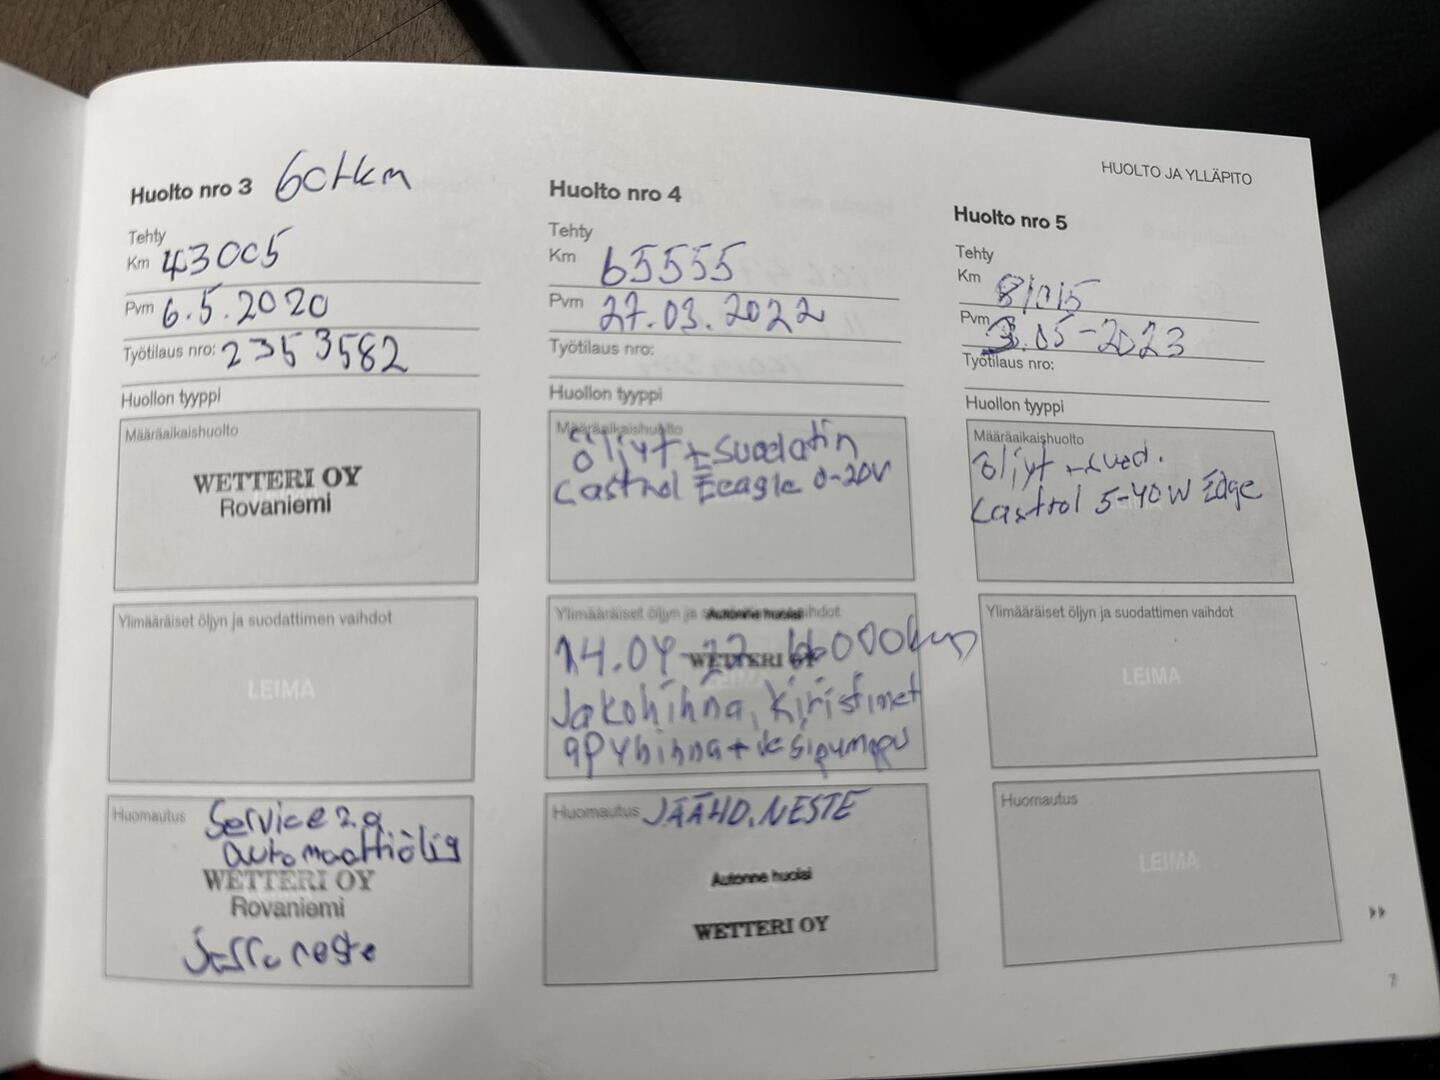 HUOLTO JA YLLÄPITO
Huolto nro 3 60tkm
Tehty
Km 43005
Pvm 6.5.2020
Työtilaus nro: 2353582
Huollon tyyppi
Määräaikaishuolto
WETTERI OY
Rovaniemi
Ylimääräiset öljyn ja suodattimen vaihdot
LEIMA
Huomautus Service 2.a
automaattiöljy
WETTERI OY
Rovaniemi
Jarru neste
Huolto nro 4
Tehty
Km 65555
Pvm 27.03.2022
Työtilaus nro:
Huollon tyyppi
Määräaikaishuolto
Öljyt + suodatin
Castrol 0-20W
Ylimääräiset öljyn ja vaihdot
Autonne huolsi
14.04-22 66000km
WETTERI OY
Jakohihna, kiristimet
apyhihna + vesipumppu
Huomautus JÄÄHD.NESTE
Autonne huolsi
WETTERI OY
Huolto nro 5
Tehty
Km
Pvm 3.05-2023
Työtilaus nro:
Huollon tyyppi
Määräaikaishuolto
öljyt + suod.
Castrol 5-40W Edge
LEIMA
Ylimääräiset öljyn ja suodattimen vaihdot
LEIMA
Huomautus
LEIMA
7